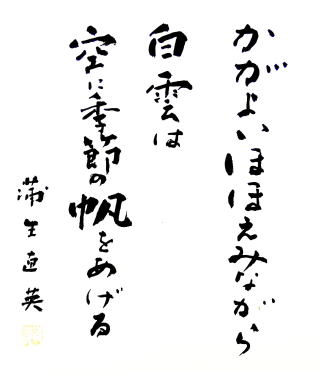 かがよいほほえみながら
白雲は
空に季節の帆をあげる
蒲生直英